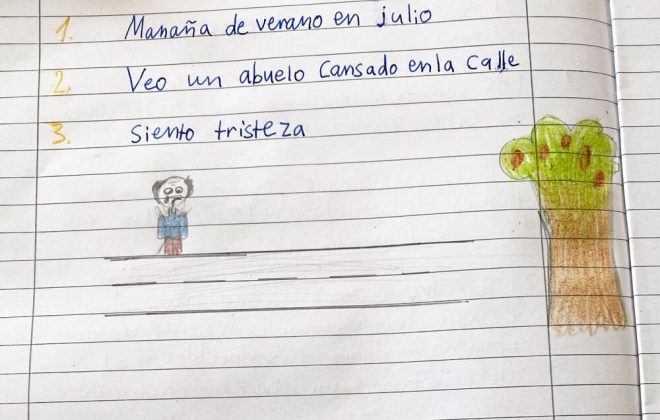 1. Manaña de verano en julio
2. Veo un abuelo cansado en la calle
3. siento tristeza